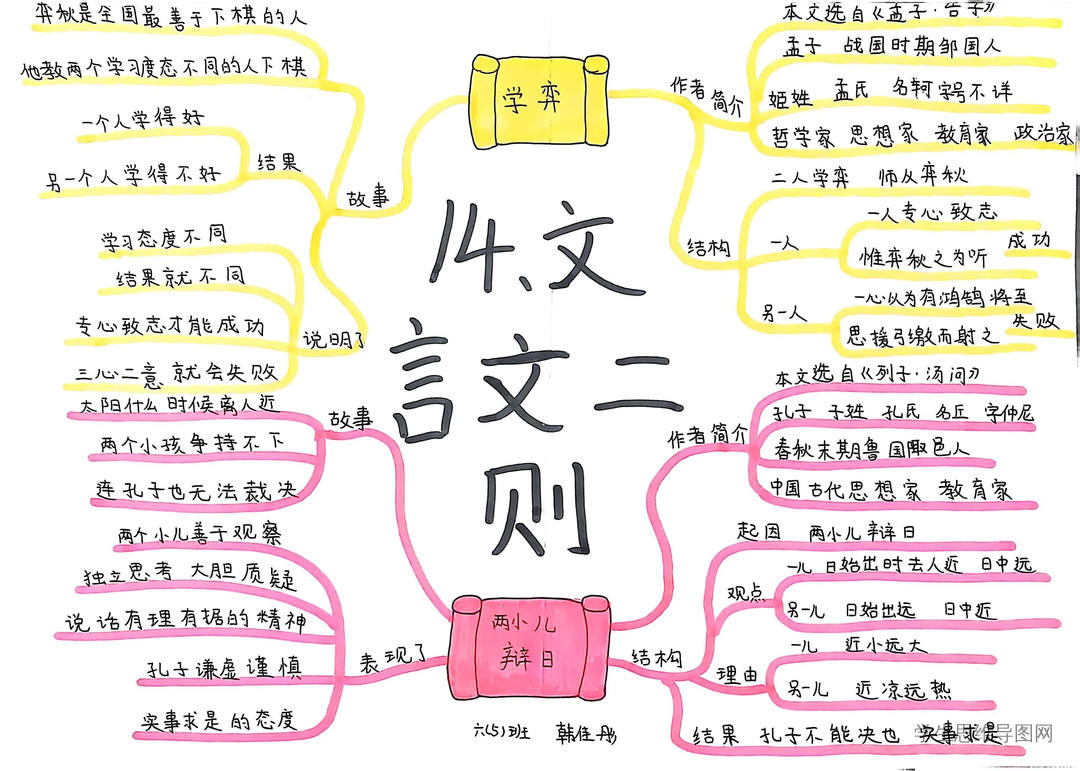 14、文
言文二
则
学弈
故事
弈秋是全国最善于下棋的人
他教两个学习度态不同的人下棋
结果
一个人学得好
另一个人学得不好
说明了
学习态度不同
结果就不同
专心致志才能成功
三心二意就会失败
作者简介
本文选自《孟子·告子》
孟子 战国时期邹国人
姬姓 孟氏 名轲字号不详
哲学家 思想家 教育家 政治家
结构
二人学弈 师从弈秋
一人
一人专心致志
惟弈秋之为听
成功
另一人
一心以为有鸿鹄将至
思援弓缴而射之
失败
两小儿
辩日
故事
太阳什么时候离人近
两个小孩争持不下
连孔子也无法裁决
表现了
两个小儿善于观察
独立思考 大胆质疑
说话有理有据的精神
孔子谦虚谨慎
实事求是的态度
作者简介
本文选自《列子·汤问》
孔子 子姓 孔氏 名丘 字仲尼
春秋末期鲁国陬邑人
中国古代思想家 教育家
结构
起因 两小儿辩日
观点
一儿 日始出时去人近 日中远
另一儿 日始出远 日中近
理由
一儿 近小远大
另一儿 近凉远热
结果 孔子不能决也 实事求是
六(5)班 韩佳彤
学生思维导图网